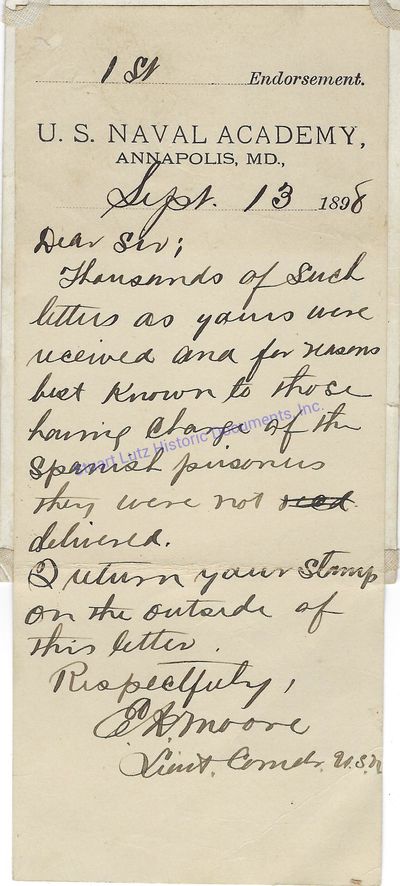 1st Endorsement.
U. S. NAVAL ACADEMY,
ANNAPOLIS, MD.,
Sept. 13 1898
Dear Sir;
Thousands of such
letters as yours were
received and for reasons
best known to those
having charge of the
Spanish prisoners
they were not read
delivered.
I return your stamp
on the outside of
this letter.
Respectfully,
E K Moore
Lieut. Comdr. U.S.N
Stuart Lutz Historic Documents, Inc.